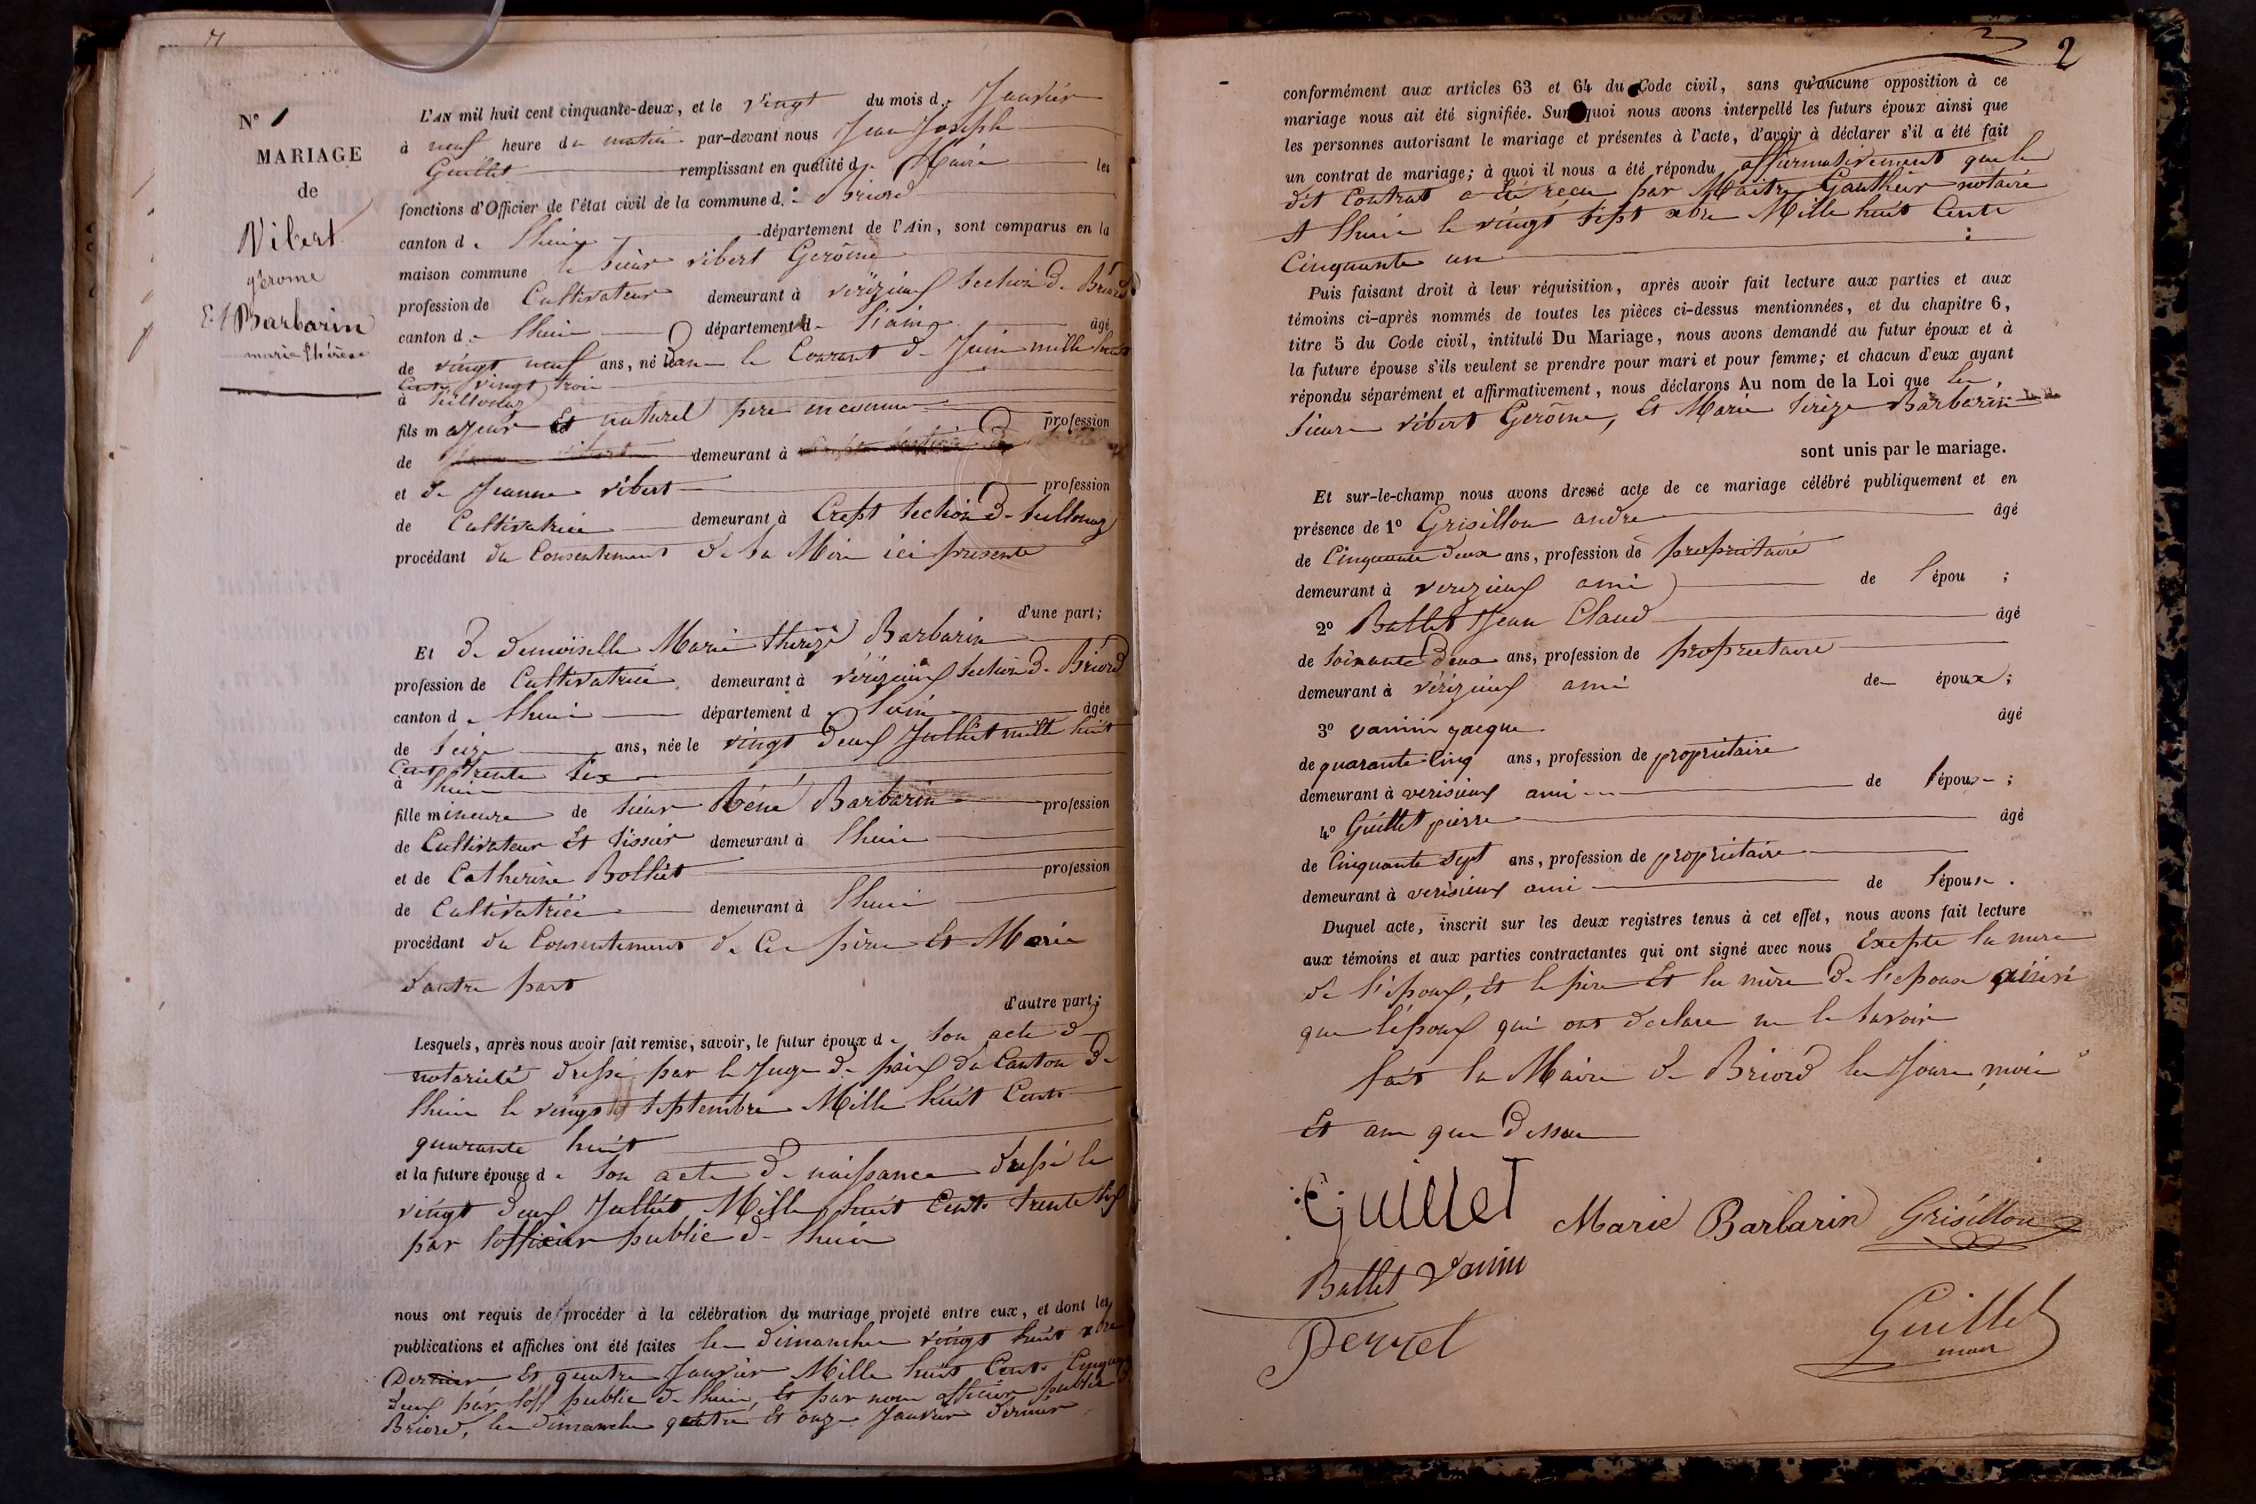 N° 1
MARIAGE
de
Vibert
gérome
Et Barbarin
marie thérèse
L'AN mil huit cent cinquante-deux, et le vingt du mois de Janvier
à neuf heure du matin par-devant nous Jean Joseph
Guillet remplissant en qualité de Maire les
fonctions d'Officier de l'état civil de la commune de Briord
canton de Lhuis département de l'Ain, sont comparus en la
maison commune le sieur vibert Gerôme
profession de Cultivateur demeurant à vérizieux section de Briord
canton de Lhuis département de l'ain âgé
de vingt neuf ans, né dans le Courant de Juin mille huit
Cent vingt trois
à
fils majeur Et naturel père inconnu profession
de demeurant à
et de Jeanne vibert profession
de Cultivatrice demeurant à Crept section de
procédant du Consentement de sa Mère ici presente
d'une part;
Et de demoiselle Marie thérèze Barbarin
profession de Cultivatrice demeurant à vérizieux section de Briord
canton de Lhuis département de l'ain âgée
de seize ans, née le vingt deux Julliet mille huit
Cent trente six
à Lhuis
fille mineure de sieur Réné Barbarin profession
de Cultivateur Et tissier demeurant à Lhuis
et de Catherine Bolliet profession
de Cultivatrice demeurant à Lhuis
procédant du Consentement de Ce père Et Mère
d'autre part
d'autre part;
Lesquels, après nous avoir fait remise, savoir, le futur époux de son acte de
notariété dressé par le Juge de paix du Canton de
Lhuis le vingt septembre Mille huit Cent
quarante huit
et la future épouse de son acte de naissance dressé le
vingt deux Julliet Mille huit Cent trente six
par l'officier public de Lhuis
nous ont requis de procéder à la célébration du mariage projeté entre eux, et dont les
publications et affiches ont été faites les dimanche vingt huit xbre
Dernier Et quatre Janvier Mille huit Cent Cinquante
deux par l'off public de Lhuis, Et par nous officier public
Briord, les dimanche quatre Et onze Janvier dernier
2
conformément aux articles 63 et 64 du Code civil, sans qu'aucune opposition à ce
mariage nous ait été signifiée. Sur quoi nous avons interpellé les futurs époux ainsi que
les personnes autorisant le mariage et présentes à l'acte, d'avoir à déclarer s'il a été fait
un contrat de mariage; à quoi il nous a été répondu affirmativement que le
dit Contrat a été recu par Maître Gauthier notaire
A Lhuis le vingt sept xbre Mille huit Cent
Cinquante un
Puis faisant droit à leur réquisition, après avoir fait lecture aux parties et aux
témoins ci-après nommés de toutes les pièces ci-dessus mentionnées, et du chapitre 6,
titre 5 du Code civil, intitulé Du Mariage, nous avons demandé au futur époux et à
la future épouse s'ils veulent se prendre pour mari et pour femme; et chacun d'eux ayant
répondu séparément et affirmativement, nous déclarons Au nom de la Loi que le
sieur vibert Gerôme, Et Marie térèze Barbarin
sont unis par le mariage.
Et sur-le-champ nous avons dressé acte de ce mariage célébré publiquement et en
présence de 1° Grisillon andre âgé
de Cinquante deux ans, profession de propriétaire
demeurant à verizieux ami de l'épou ;
2° Ballet Jean Claud âgé
de soixante deux ans, profession de propriétaire
demeurant à vérizieux ami de époux ;
3° vanin jacque âgé
de quarante Cinq ans, profession de propriétaire
demeurant à verisieux ami de l'épouse ;
4° Guillet pierre âgé
de Cinquante sept ans, profession de propriétaire
demeurant à verisieux ami de l'épouse.
Duquel acte, inscrit sur les deux registres tenus à cet effet, nous avons fait lecture
aux témoins et aux parties contractantes qui ont signé avec nous Exepte la mere
de l'époux, Et le père Et la mère de l'epouse ainsi
que l'époux qui ont declare ne le savoir
fait la Mairie de Briord les Jour mois
Et an que dessu
Guillet Marie Barbarin Grisillon
Ballet Vanin
Perret
Guillet
maire